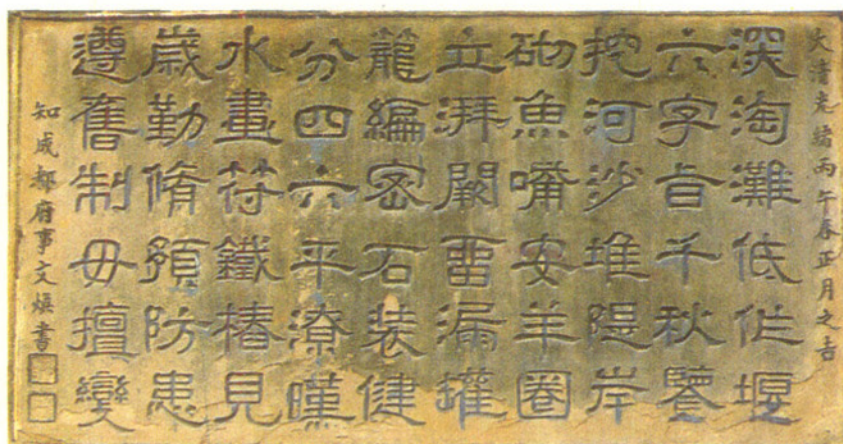 大清光緒丙午春正月之吉
深淘灘低作堰
六字旨千秋鑒
挖河沙堆隄岸
砌魚嘴安羊圈
立湃闕畱漏罐
籠編密石裝健
分四六平潦暵
水畫符鐵樁見
歲勤脩預防患
遵舊制毋擅變
知成都府事文煥書